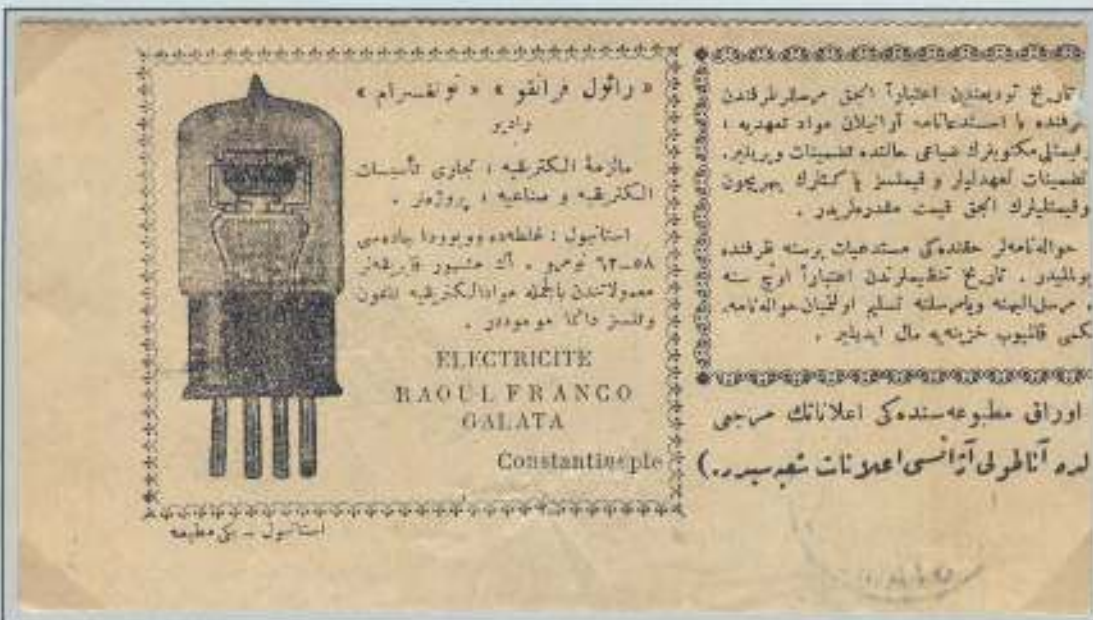 « رائول فرانقو » « تونغسرام »
راديو
مالزمهٔ الكتريقيه ؛ تجارى تأسيسات
الكتريقيه و صناعيه ؛ پروژه‌لر .
استانبول : غلطه‌ده وويوودا جاده‌سى
٥٨ــ٦٢ نومرو . اك مشهور فابريقه‌لر
معمولاتندن بالجمله موادالكتريقيه تلفون
وتلسز دائما موجوددر .
ELECTRICITE
RAOUL FRANCO
GALATA
Constantinople
استانبول ــ يكى مطبعه
تاريخ توديعندن اعتباراً آنجق مرسللر طرفندن
ظرفنده با استدعانامه آرانيلان مواد تعهديه ؛
قيمتلى مكتوبلرك ضياعى حالنده تضمينات ويريلير.
تضمينات تعهدليلر و قيمتسز پاكتلرك بهريچون
وقيمتليلرك آنجق قيمت مقدره‌لريدر .
حواله‌نامه‌لر حقنده‌كى مستدعيات برسنه ظرفنده
تاريخ تنظيملرندن اعتباراً اوچ سنه
مرسل‌اليهنه وياسرسلنه تسليم اولنميان حواله‌نامه
قالیوب خزينه‌يه مال ايديلير .
اوراق مطبوعه‌سنده‌كى اعلاناتك مرجعى
آناطولى آژانسى اعلانات شعبه‌سيدر.)